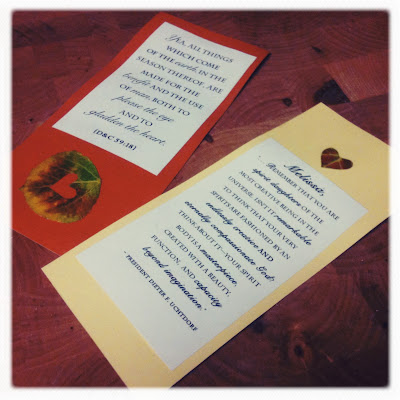 Yea, ALL THINGS
WHICH COME
OF THE earth, IN THE
SEASON THEREOF, ARE
MADE FOR THE
benefit AND THE USE
OF man, BOTH TO
please the eye
AND TO
gladden the heart.
(D&C 59:18)
Melissa,
"REMEMBER THAT YOU ARE
spirit daughters OF THE
MOST CREATIVE BEING IN THE
UNIVERSE. ISN'T IT remarkable
TO THINK THAT YOUR VERY
SPIRITS ARE FASHIONED BY AN
endlessly creative AND
eternally compassionate God?
THINK ABOUT IT - YOUR SPIRIT
BODY IS A masterpiece,
CREATED WITH A BEAUTY,
FUNCTION, AND capacity
beyond imagination."
- PRESIDENT DIETER F. UCHTDORF